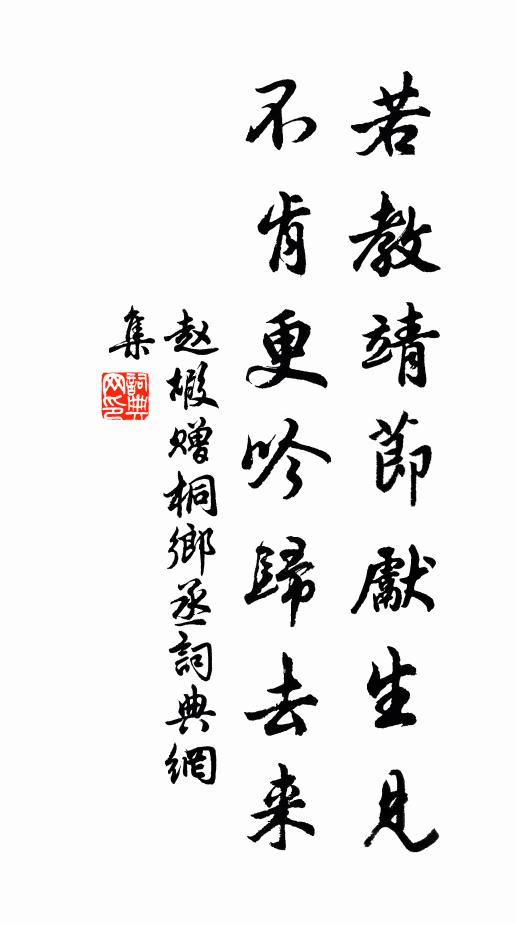 若教靖節獻生見
不肯更吟歸去来
赵嘏赠桐鄉丞詞典網
集
詞典
网印